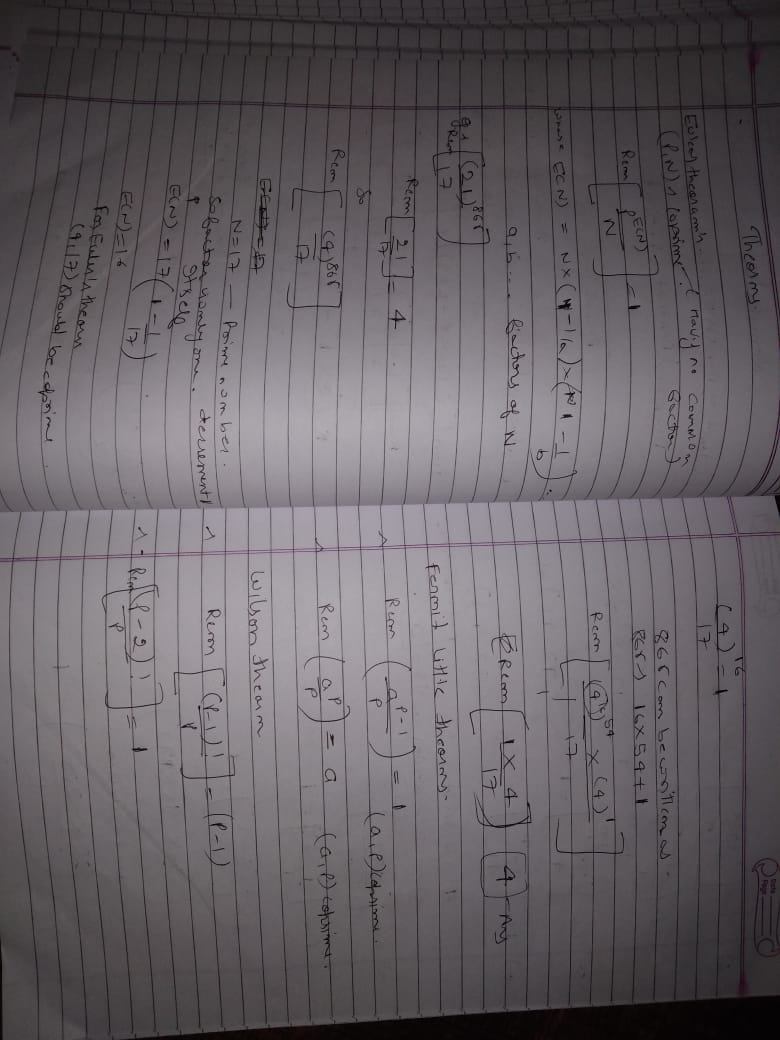 Theorms.
Euler theorem :-
(P, N) → coprime. (Having no common factor)
Rem [P^E(N) / N] = 1
where E(N) = N × (1 - 1/a) × (1 - 1/b).
a, b ... factors of N.
eg → Rem [(21)^865 / 17]
Rem [21 / 17] = 4
So
Rem [(4)^865 / 17]
N = 17 — Prime number.
So factor is only one.
itself
E(N) = 17 (1 - 1/17)
E(N) = 16
For Euler's theorm
(4, 17) should be coprime
(4)^16 / 17 = 1
865 can be written as.
865 → 16 × 54 + 1
Rem [(4^16)^54 × (4)^1 / 17]
Rem [1 × 4 / 17] 4 - Ans
Fermit little theorms.
→ Rem (a^p-1 / p) = 1 (a, p) coprime.
→ Rem (a^p / p) = a (a, p) coprime.
Wilson theorm
→ Rem [(P-1)! / P] = (P-1)
→ Rem [(P-2)! / P] = 1
Date
Page